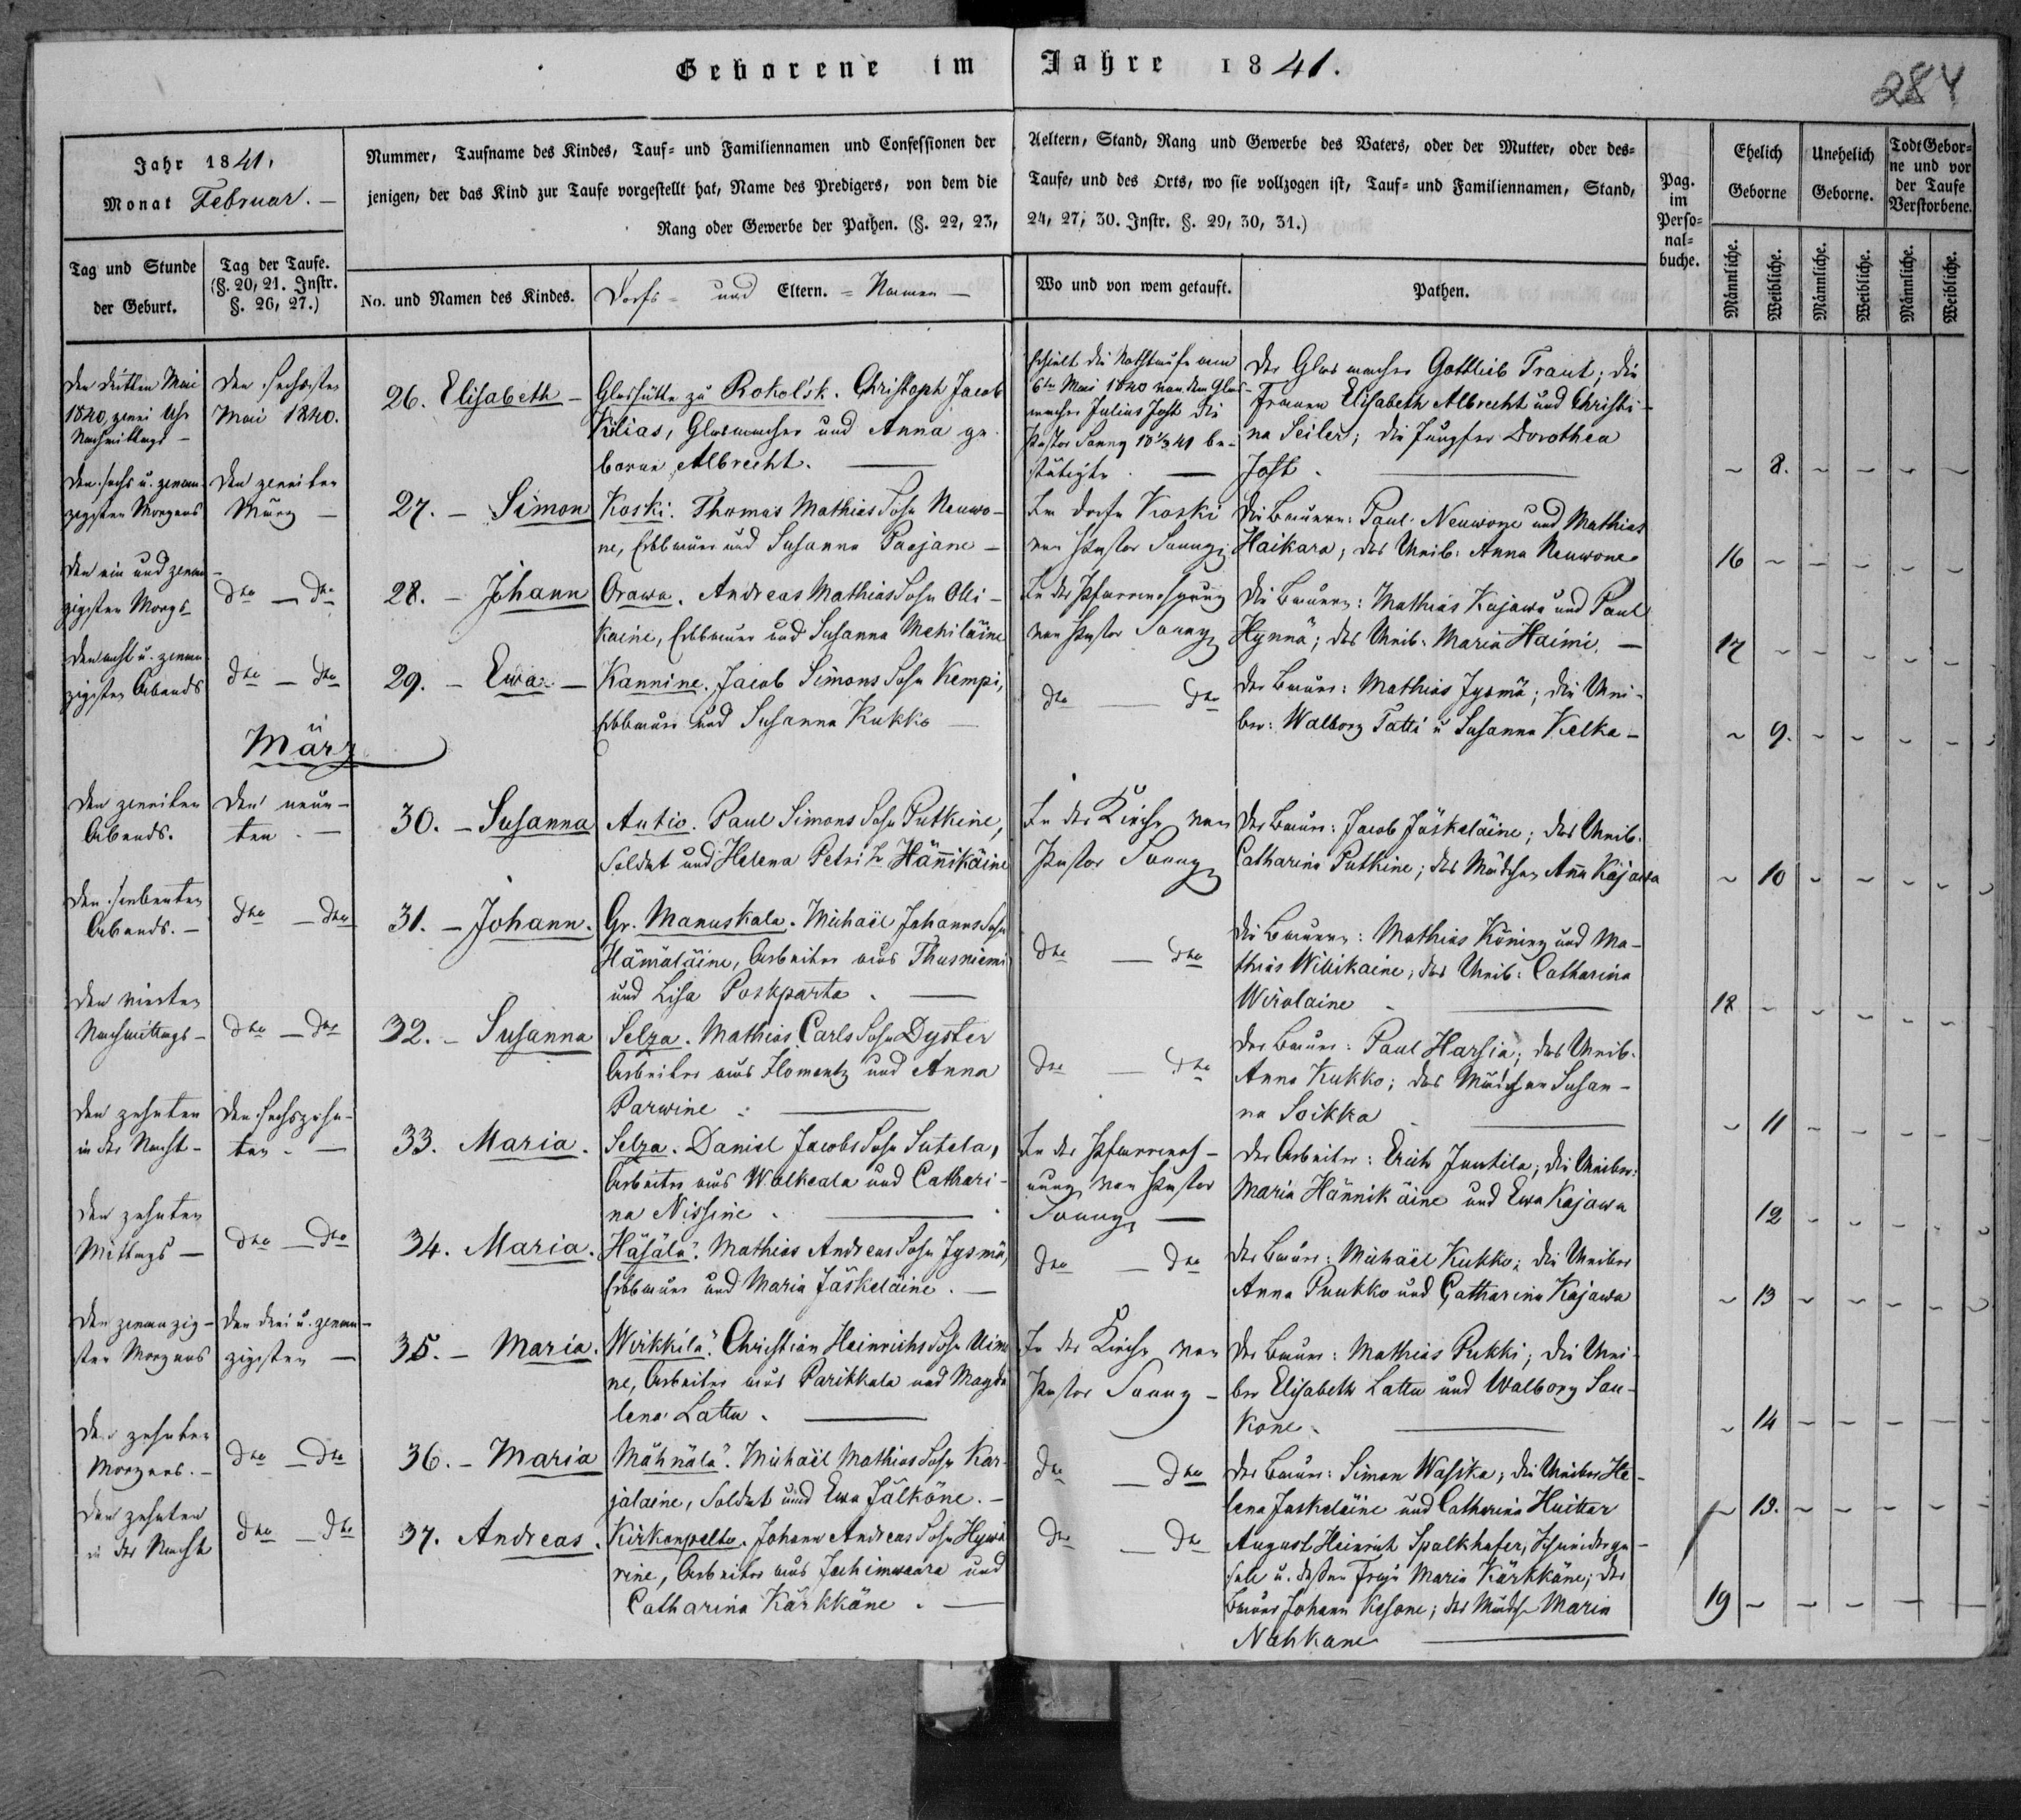 Geborene im Jahre 1841.
284
Jahr 1841,
Monat Februar. —
Nummer, Taufname des Kindes, Tauf= und Familiennamen und Confessionen der Aeltern, Stand, Rang und Gewerbe des Vaters, oder der Mutter, oder des=
jenigen, der das Kind zur Taufe vorgestellt hat, Name des Predigers, von dem die Taufe, und des Orts, wo sie vollzogen ist, Tauf= und Familiennamen, Stand,
Rang oder Gewerbe der Pathen. (§. 22, 23, 24, 27, 30. Instr. §. 29, 30, 31.)
Pag.
im
Perso=
nal=
buche.
Ehelich
Geborne
Unehelich
Geborne.
Todt Gebor=
ne und vor
der Taufe
Verstorbene.
Tag und Stunde
der Geburt.
Tag der Taufe.
(§. 20, 21. Instr.
§. 26, 27.)
No. und Namen des Kindes.
Dorfs = und Eltern. = Namen —
Wo und von wem getauft.
Pathen.
Männliche.
Weibliche.
Männliche.
Weibliche.
Männliche.
Weibliche.
Den dritten Mai
1840, zwei Uhr
Nachmittags —
Den sechsten
Mai 1840.
26. Elisabeth —
Glashütte zu Rokolsk. Christoph Jacob
Kilias, Glasmacher und Anna ge-
borne Albrecht. —
Erhielt die Nothtaufe am
6ten Mai 1840 von dem Glas-
macher Julius Jost die
Pastor Sanng 10/3 41 be-
stätigte. —
Der Glasmacher Gottlieb Traut; die
Frauen Elisabeth Albrecht und Christi-
na Seiler; die Jungfer Dorothea
Jost. —
8.
Den sechs u. zwan-
zigsten Morgens
Den zweiten
März —
27. — Simon
Koski. Thomas Mathias Sohn Neuwo-
ne, Erbbauer und Susanna Paejane —
Im Dorfe Koski
von Pastor Sanng
Die Bauern: Paul Neuwone und Mathias
Haikara; das Weib: Anna Neuwone
16
Den ein und zwan-
zigsten Morgs
dto — dto
28. — Johann
Orawa. Andreas Mathias Sohn Olli-
kaine, Erbbauer und Susanna Mehiläine
von Pastor Sanng
Die Bauern: Mathias Kajawa und Paul
Hynnä; das Weib: Maria Haimi. —
17
Den acht u. zwan-
zigsten Abends
dto — dto
29. — Ewa —
Kannine. Jacob Simons Sohn Kempi,
Erbbauer und Susanna Kukko —
dto — dto
Der Bauer: Mathias Jysmä; die Wei-
ber: Walborg Tatti u Susanna Kelka —
9.
März
Den zweiten
Abends.
Den neun-
ten. —
30. — Susanna
Autio. Paul Simons Sohn Putkine,
Soldat und Helena Petri Tr Hännikäine
In der Kirche von
Pastor Sanng
Der Bauer: Jacob Jäskeläine; das Weib.
Catharina Putkine; das Mädchen Anna Kajawa
10
Den siebenten
Abends. —
dto — dto
31. — Johann.
Gr. Manuskala. Michaël Johanns Sohn
Hämäläine, Arbeiter aus Thusniemi
und Lisa Poskparta. —
dto — dto
Die Bauern: Mathias Köning und Ma-
thias Wilikaine; das Weib: Catharina
Wirolaine —
18
Den vierten
Nachmittags —
dto — dto
32. — Susanna
Selza. Mathias Carls Sohn Dyster
Arbeiter aus Ilomentz und Anna
Parwine. —
dto — dto
Der Bauer: Paul Harsia; das Weib.
Anna Kukko; das Mädchen Susan-
na Soikka —
11
Den zehnten
in der Nacht —
Den sechszehn-
ten. —
33. Maria.
Selza. Daniel Jacobs Sohn Sutela,
Arbeiter aus Walkeala und Cathari-
na Nissine. —
von Pastor
Sanng —
Der Arbeiter: Erich Juntila; die Weiber:
Maria Hännikäine und Ewa Kajawa
12
Den zehnten
Mittags —
dto — dto
34. Maria.
Häsälä. Mathias Andreas Sohn Jysmä,
Erbbauer und Maria Jäskeläine. —
dto — dto
Der Bauer: Michaël Kukko; die Weiber
Anna Puukko und Catharina Kajawa
13
Den zwanzig-
sten Morgens
Den drei u. zwan-
zigsten —
35. — Maria.
Wirkkilä. Christian Heinrichs Sohn Uimo
ne, Arbeiter aus Parikkala und Magda
lena Lattu. —
In der Kirche von
Pastor Sanng —
Der Bauer: Mathias Pukki; die Wei-
ber Elisabeth Lattu und Walborg Sau-
kone. —
14
Den zehnten
Morgens. —
dto — dto
36. — Maria
Mähnälä. Michaël Mathias Sohn Kar-
jalaine, Soldat und Ewa Jälköne. —
dto — dto
Der Bauer: Simon Wasika; die Weiber He-
lena Jaskeläine und Catharina Huittar
15.
Den zehnten
in der Nacht
dto — dto
37. Andreas.
Kirkonpelto. Johann Andreas Sohn Hywä
rine, Arbeiter aus Jachimwaara und
Catharina Kärkkäne. —
dto — dto
August Heinrich Spalkhafer, Schneiderge-
sell u. dessen Frau Maria Kärkkäne; der
Bauer Johann Kesone; das Mädch Maria
Nahkane —
19